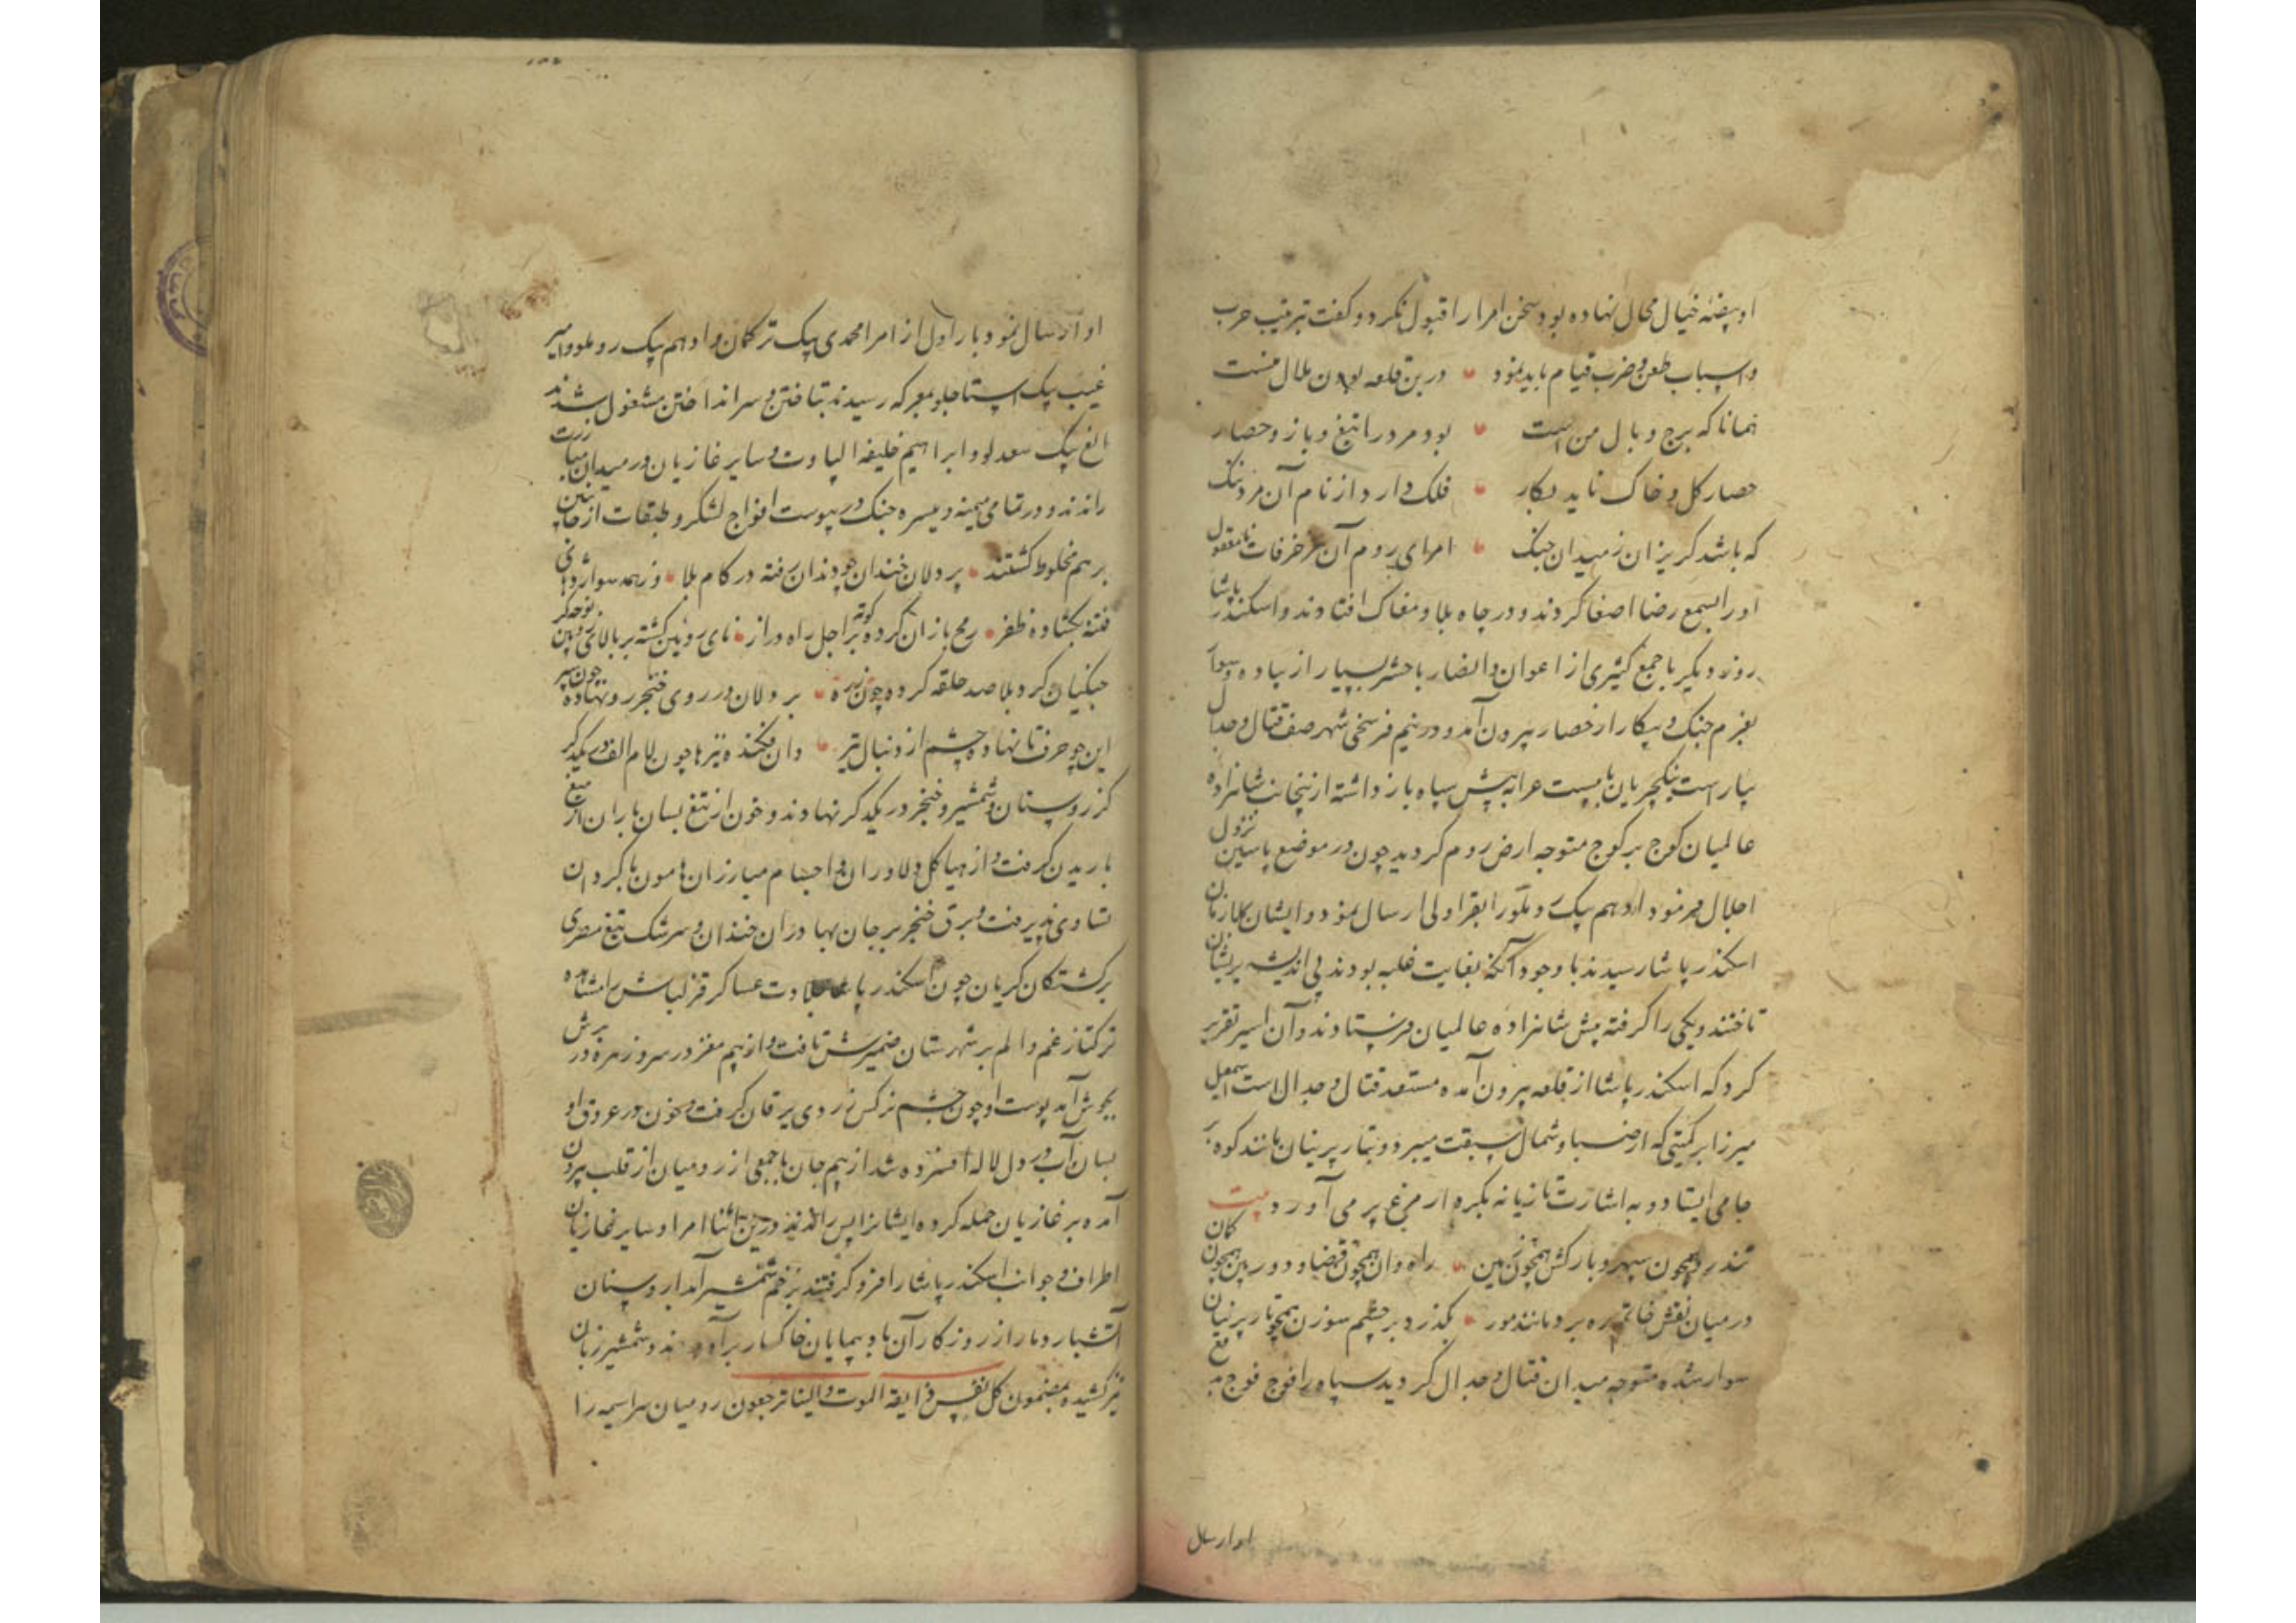 او بیضهٔ خیال محال نهاده بود سخن امرا را قبول نکرد و گفت ترتیب حرب
و اسباب طعن و ضرب قیام باید نمود درین قلعه بودن ملال منست
همانا که برج وبال من است بود مرد را تیغ و بازو حصار
حصار کل و خاک ناید بکار فلک دارد از نام آن مرد ننگ
که باشد گریزان ز میدان جنگ امرای روم آن مزخرفات نامعقول
او را بسمع رضا اصغا کردند و در چاه بلا و مغاک افتادند و اسکندر پاشا
روز دیگر با جمع کثیری از اعوان و انصار با حشر بسیار از پیاده و سوار
بعزم جنگ و پیکار از حصار بیرون آمد و در نیم فرسخی شهر صف قتال و جدال
بیاراست ینکچریان با بیست عرابه پیش سپاه باز داشته ازینجانب شاهزاده
عالمیان کوچ بر کوچ متوجه ارض روم گردید چون در موضع پاسین نزول
اجلال فرمود ادهم بیک روملو را بقراولی ارسال نمود و ایشان بملازمان
اسکندر پاشا رسیدند با وجود آنکه بغایت غلبه بودند بی اندیشه بریشان
تاختند و یکی را گرفته پیش شاهزاده عالمیان فرستادند و آن اسیر تقریر
کرد که اسکندر پاشا از قلعه بیرون آمده مستعد قتال و جدال است اسمعیل
میرزا بر کمیتی که از صبا و شمال سبقت میبرد و بتار پرنیان مانند کوه بر
جا می ایستاد و به اشارت تازیانه بکره ار مرغ پر می آورد بیت
تندرو همچون سپهر و بارکش همچون زمین راه دان همچون قضا و دوربین همچون کمان
در میان نقش خاتم ره برد مانند مور بگذرد بر چشم سوزن همچو تار پرنیان
سوار شده متوجه میدان قتال و جدال گردید سپاه را فوج فوج
او ارسال
او ارسال نمود بار اول از امرا محمدی بیک ترکمان و ادهم بیک روملو و امیر
غیب بیک استاجلو بمعرکه رسیدند بتاختن و سر انداختن مشغول شدند
الغ بیک سعدلو و ابراهیم خلیفه الپاوت و سایر غازیان در میدان مبارزت
راندند و در تمامی میمنه و میسره جنگ در پیوست افواج لشکر و طبقات از جانبین
بر هم مخلوط گشتند پر دلان خندان چو دندان رفته در کام بلا
فتنه بگشاده ظفر رمح بازان کرده کوته بر اجل راه دراز نای رویین گشته بر بالای
جنگیان کرد بلا صد حلقه کرده چون زره پر دلان در روی خنجر رو نهاده چون سپر
این چو حرف تا نهاده چشم از دنبال تیر وان فکنده نیزها چون لام الف در یکدیگر
گرز و سنان و شمشیر و خنجر در یکدگر نهادند و خون از تیغ بسان باران از میغ
باریدن گرفت و از هیاکل دلاوران و اجسام مبارزان هامون با گردان
تساوی پذیرفت و برق خنجر بر جان بهادران خندان و سرشک تیغ مصری
بر کشتگان گریان چون اسکندر پاشا جلادت عساکر قزلباش را مشاهده
ترکتاز غم و الم بر شهرستان ضمیرش تافت و از بیم مغز در سر و زهره در برش
بجوش آمد پوست او چون چشم نرگس زردی یرقان گرفت و خون در عروق او
بسان آب در دل لاله افسرده شد از بیم جان با جمعی از رومیان از قلب بیرون
آمده بر غازیان حمله کرده ایشانرا پس راندند درین اثنا امرا و سایر غازیان
اطراف و جوانب اسکندر پاشا را فرو گرفتند بزخم شمشیر آبدار و سنان
آتشبار دمار از روزگار آن باد پیمایان خاکسار برآوردند و شمشیر زبان
تیز کشیده بمضمون کل نفس ذایقة الموت و الینا ترجعون رومیان سراسیمه را